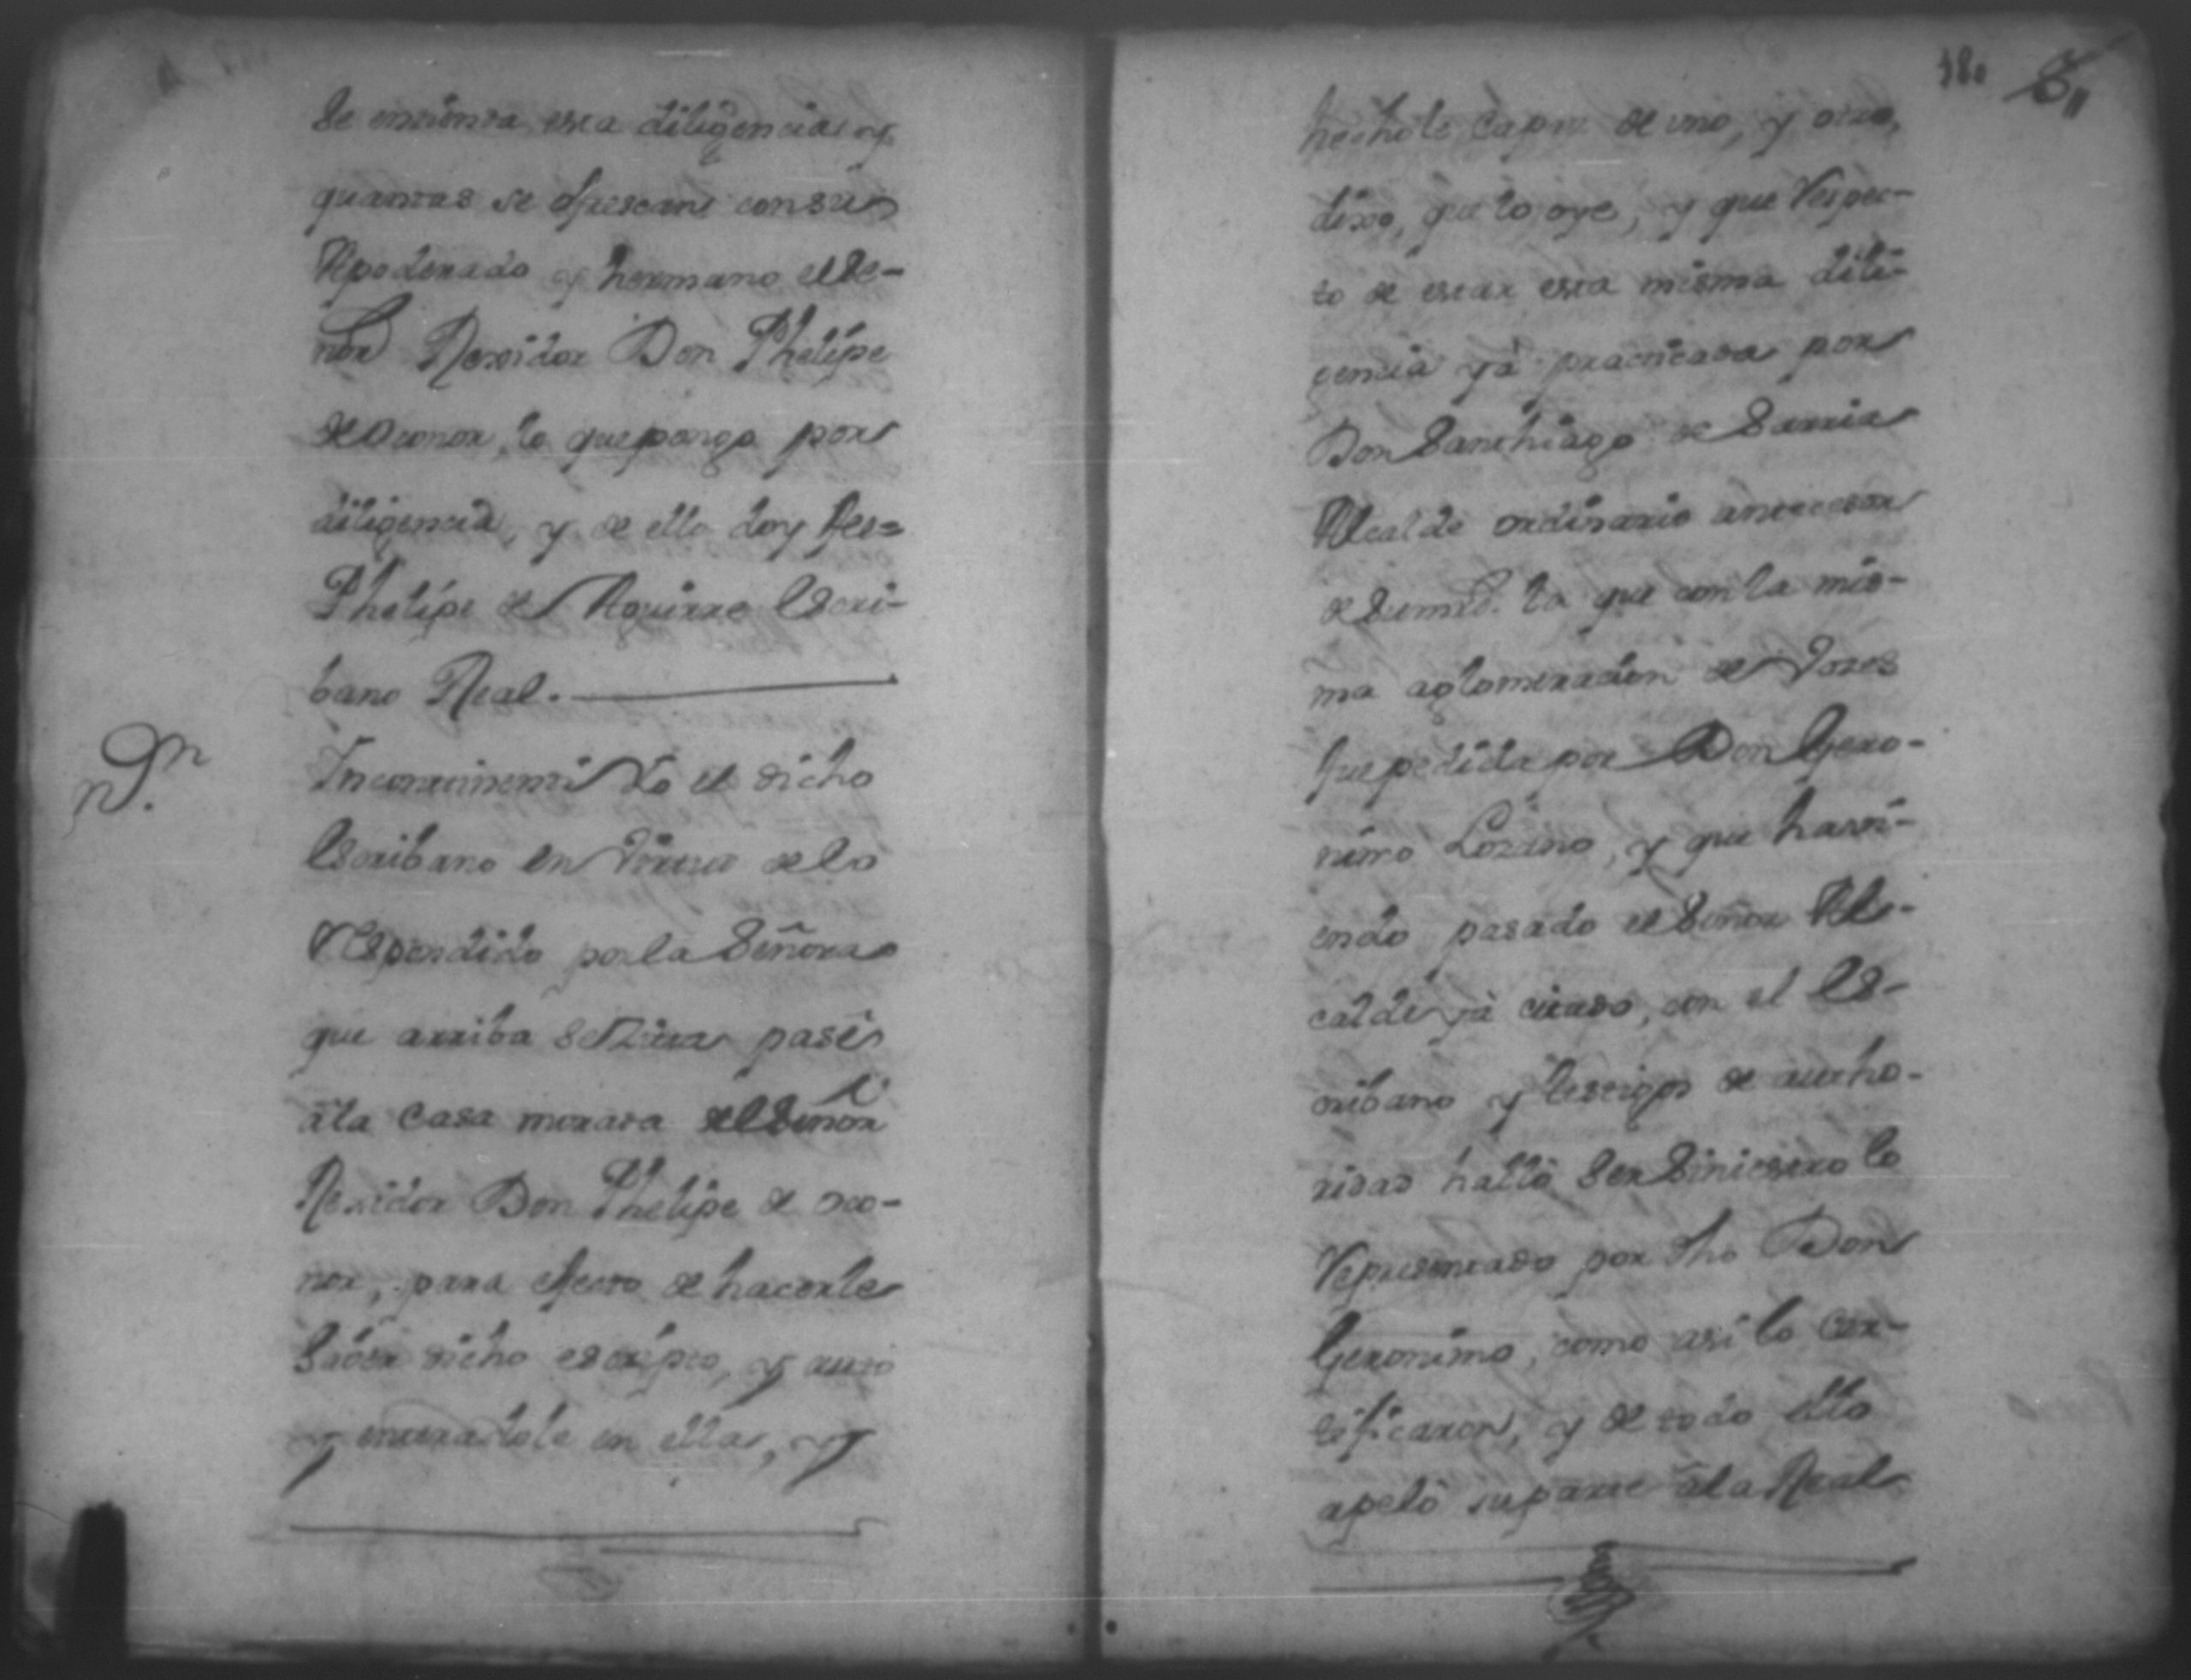 Se entienda esta diligencia y
quantas se ofrescan con su
Apoderado y hermano el Se-
ñor Rexidor Don Phelipe
de Oconor, lo que pongo por
diligencia, y de ello doy fee=
Phelipe de Aguirre Escri-
bano Real.
Yncontinenti Yo el dicho
Escribano en virtud de lo
Respondido por la Señora
que arriba se zita pasé
à la Casa morada del Señor
Rexidor Don Phelipe de Oco-
nor, para efecto de hacerle
Saber dicho escripto, y auto
y enteradole en ellas, y
180
hechole capaz de uno, y otro,
dixo, que lo oye, y que Respec-
to de estar esta misma dili-
gencia yà practicada por
Don Santhiago de Sarria
Alcalde ordinario antecesor
de su mrd. la que con la mis-
ma aglomeracion de Vozes
fue pedida por Don Gero-
nimo Lozano, y que havi-
endo pasado el Señor Al-
calde yà citado, con el Es-
cribano y testigos de autho-
ridad halló Ser Siniestro lo
Representado por dho Don
Geronimo, como asi lo Cer-
tificaron, y de todo ello
apeló su parte à la Real